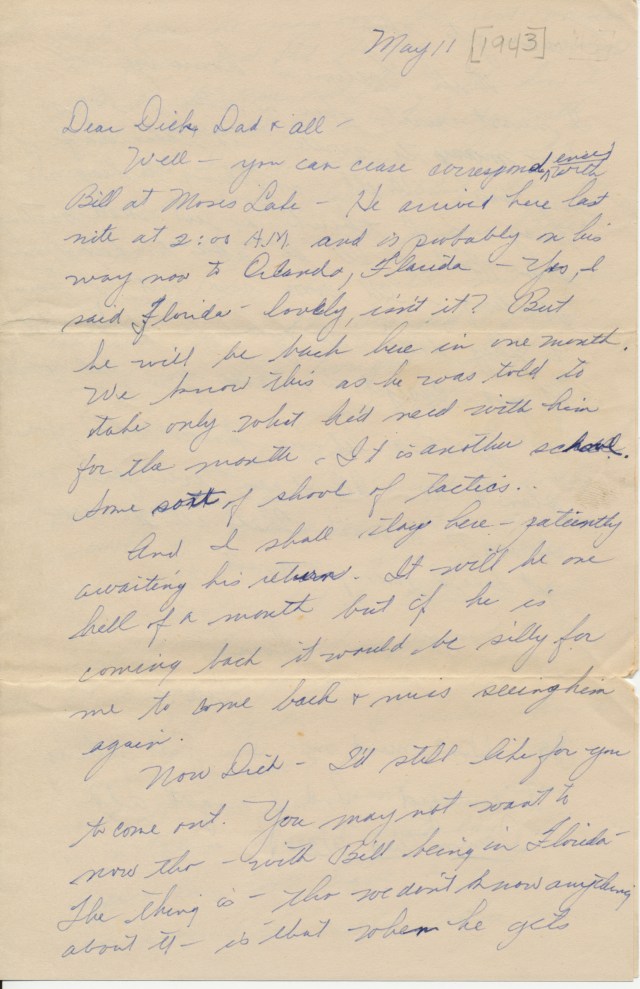 May 11 [1943]
Dear Dick, Dad & all -
Well - you can cease correspondence with
Bill at Moses Lake - He arrived here last
nite at 2:00 A.M. and is probably on his
way now to Orlando, Florida - Yes, I
said Florida - lovely, isn't it? But
he will be back here in one month.
We know this as he was told to
take only what he'd need with him
for the month. It is another school.
Some sort of shool of tactics..
And I shall stay here - patiently
awaiting his return. It will be one
hell of a month but if he is
coming back it would be silly for
me to come back & miss seeing him
again.
Now Dick - I'd still like for you
to come out. You may not want to
now tho - with Bill being in Florida -
The thing is - tho we don't know anything
about it - is that when he gets